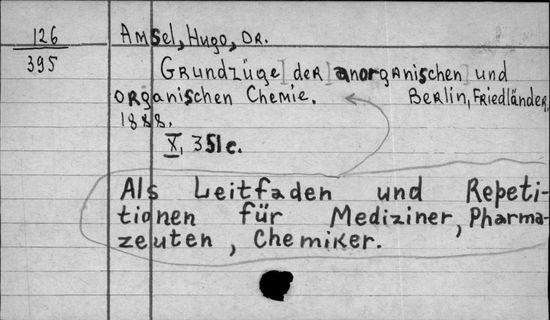 126
395
Amsel, Hugo, Dr.
Grundzüge] der] anorganischen] und
organischen Chemie. Berlin, Friedländer,
1888.
X, 351 c.
Als Leitfaden und Repeti-
tionen für Mediziner, Pharma-
zeuten, Chemiker.